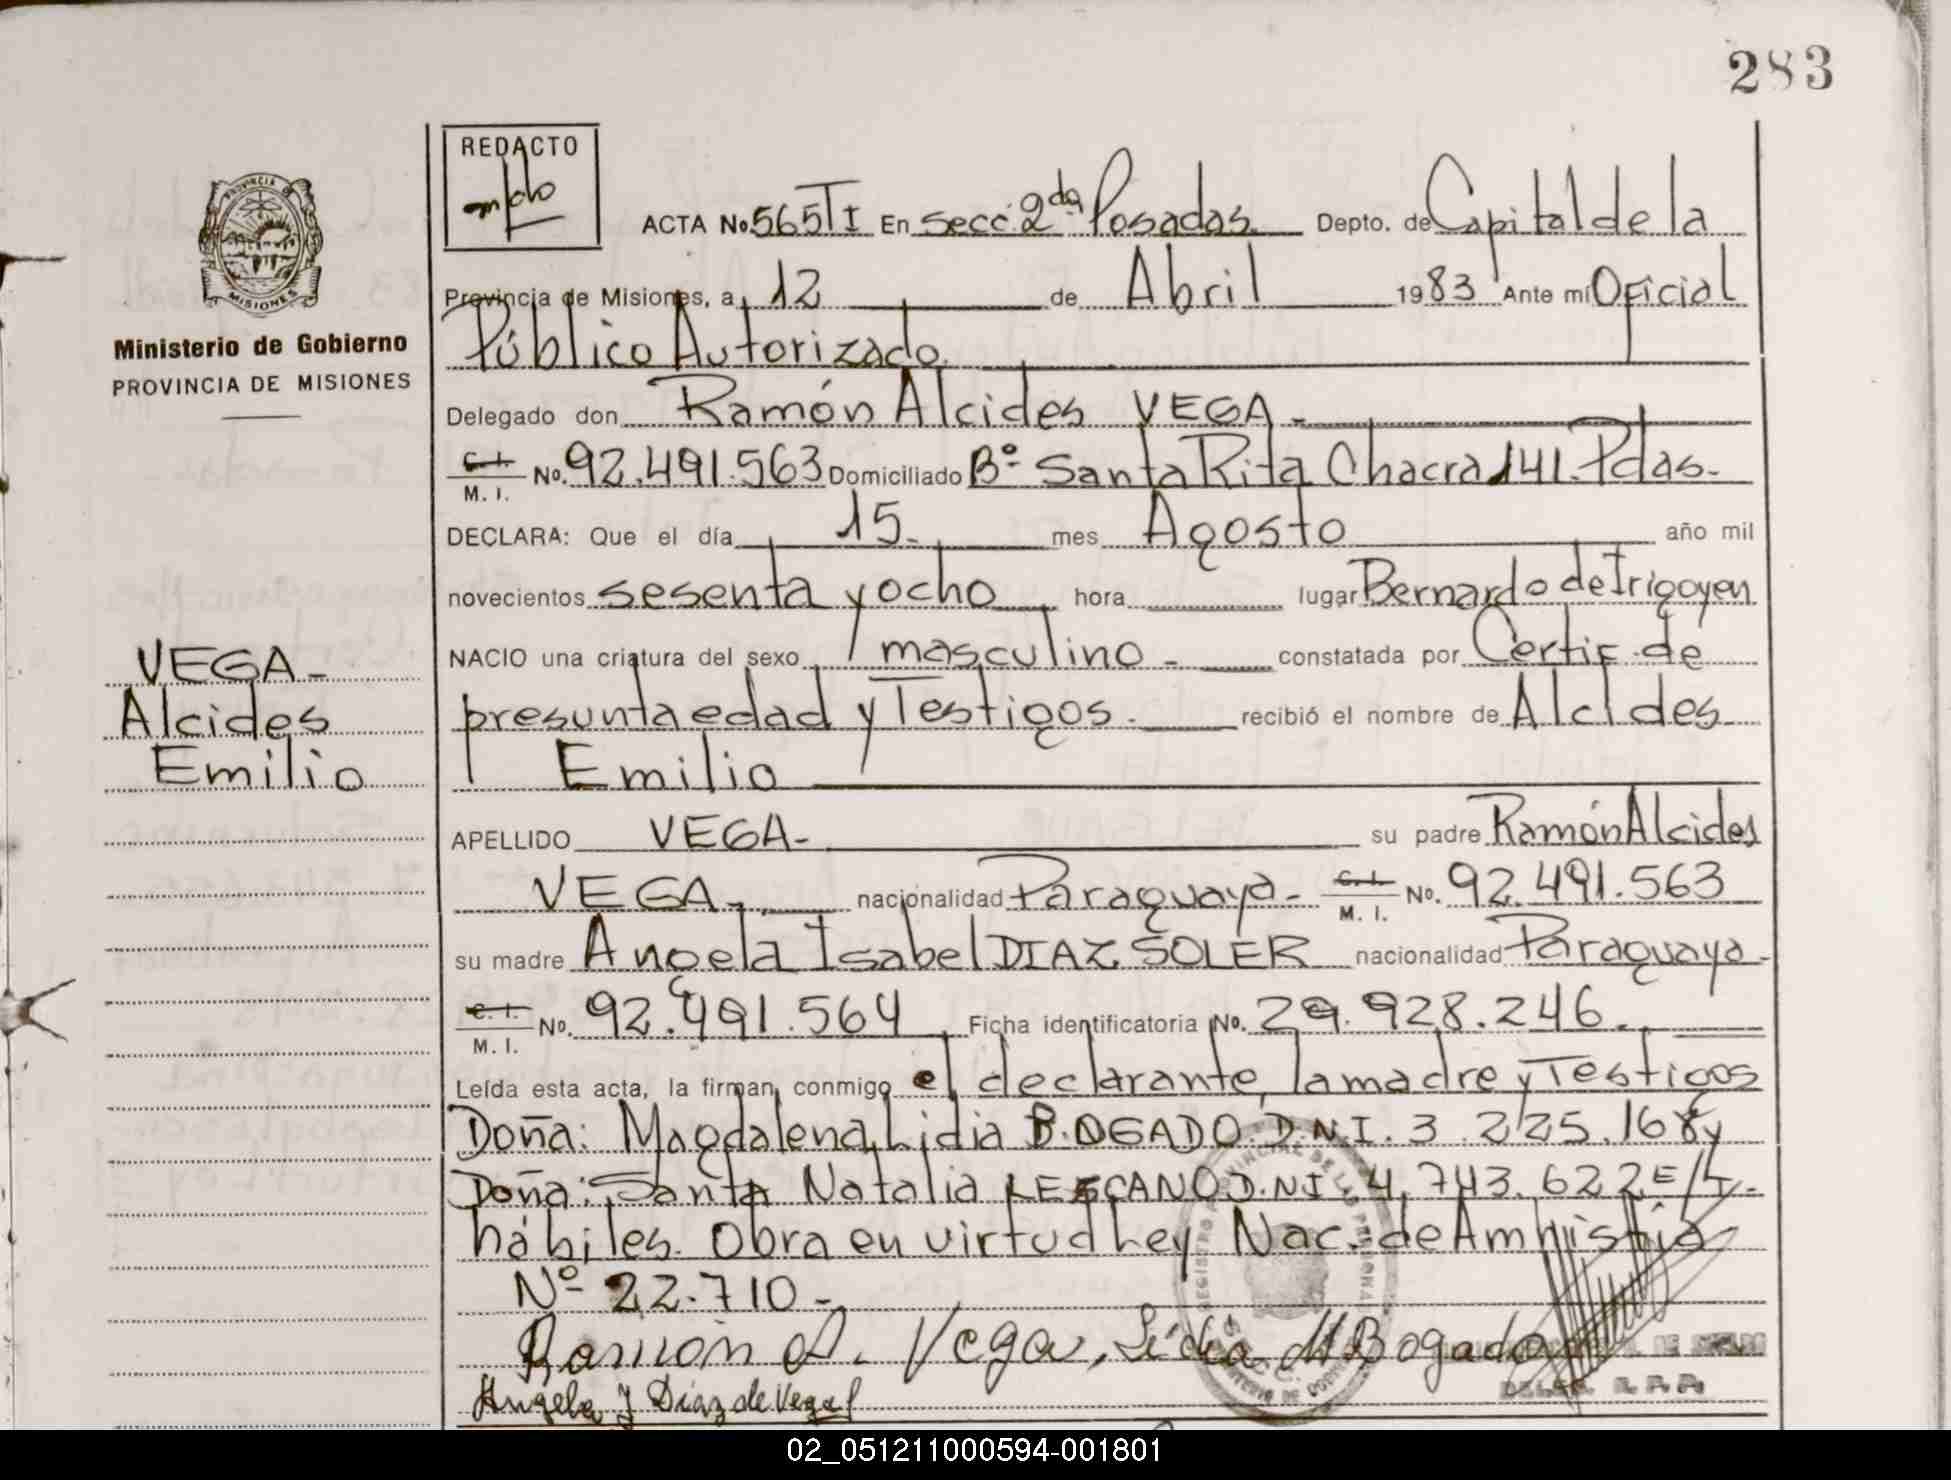 283
REDACTO
ACTA No. 565 TI En Secc. 2da Posadas. Depto. de Capital de la
Provincia de Misiones, a 12 de Abril 1983 Ante mí Oficial
Público Autorizado
Ministerio de Gobierno
PROVINCIA DE MISIONES
Delegado don Ramón Alcides VEGA-
C. I. M. I. No. 92.491.563 Domiciliado Bº Santa Rita Chacra 141. Pdas.
DECLARA: Que el día 15. mes Agosto año mil
novecientos sesenta y ocho hora lugar Bernardo de Irigoyen
NACIO una criatura del sexo masculino - constatada por Certif. de
presunta edad y Testigos. recibió el nombre de Alcides
Emilio
VEGA-
Alcides
Emilio
APELLIDO VEGA- su padre Ramón Alcides
VEGA- nacionalidad Paraguaya- C. I. M. I. No. 92.491.563
su madre Angela Isabel DIAZ SOLER nacionalidad Paraguaya-
C. I. M. I. No. 92.491.564 Ficha identificatoria No. 29.928.246.
Leída esta acta, la firman conmigo el declarante, la madre y Testigos
Doña: Magdalena Lidia BOGADO. D.N.I. 3.225.168 y
Doña: Santa Natalia LESCANO D.N.I. 4.743.622 E/T.
hábiles. Obra en virtud Ley Nac. de Amnistía
Nº 22.710-
Ramón A. Vega, Lidia M Bogado
Angela Y Diaz de Vega
02_051211000594-001801